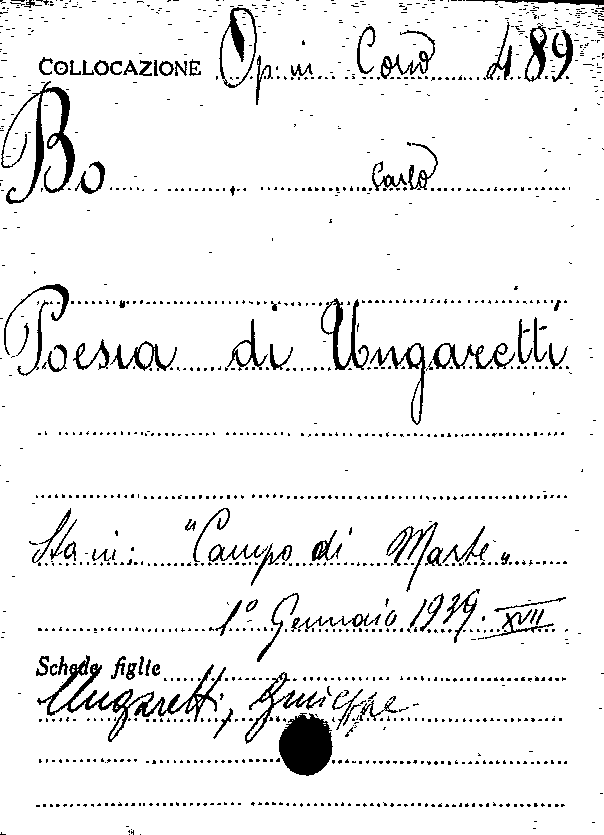 COLLOCAZIONE Op. in Corso 489
Bo Carlo
Poesia di Ungaretti
Sta in: "Campo di Marte„
1° Gennaio 1939. XVII
Schede figlie
Ungaretti, Giuseppe